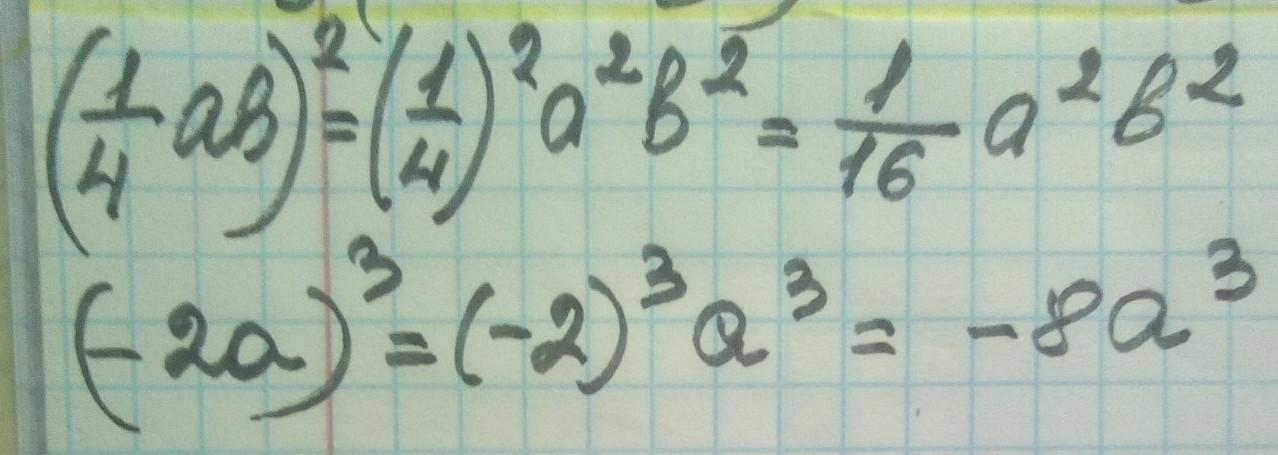 (1/4 ab)² = (1/4)² a² b² = 1/16 a² b²
(-2a)³ = (-2)³ a³ = -8a³